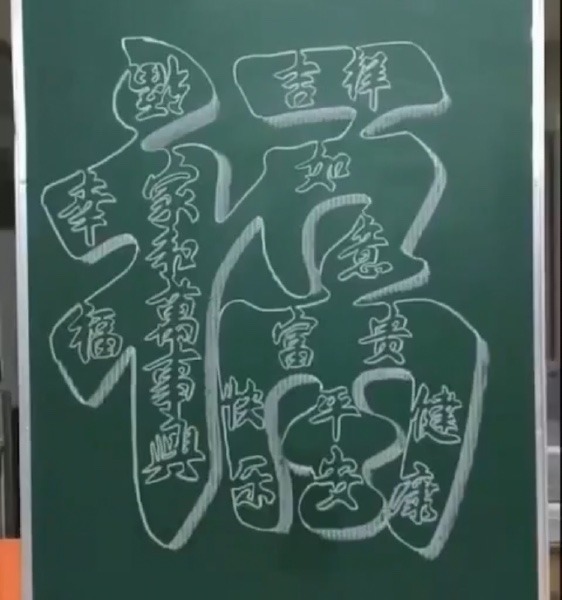 福
吉祥
如
意
幸
福
家和萬事興
富贵
快乐
平安
健康